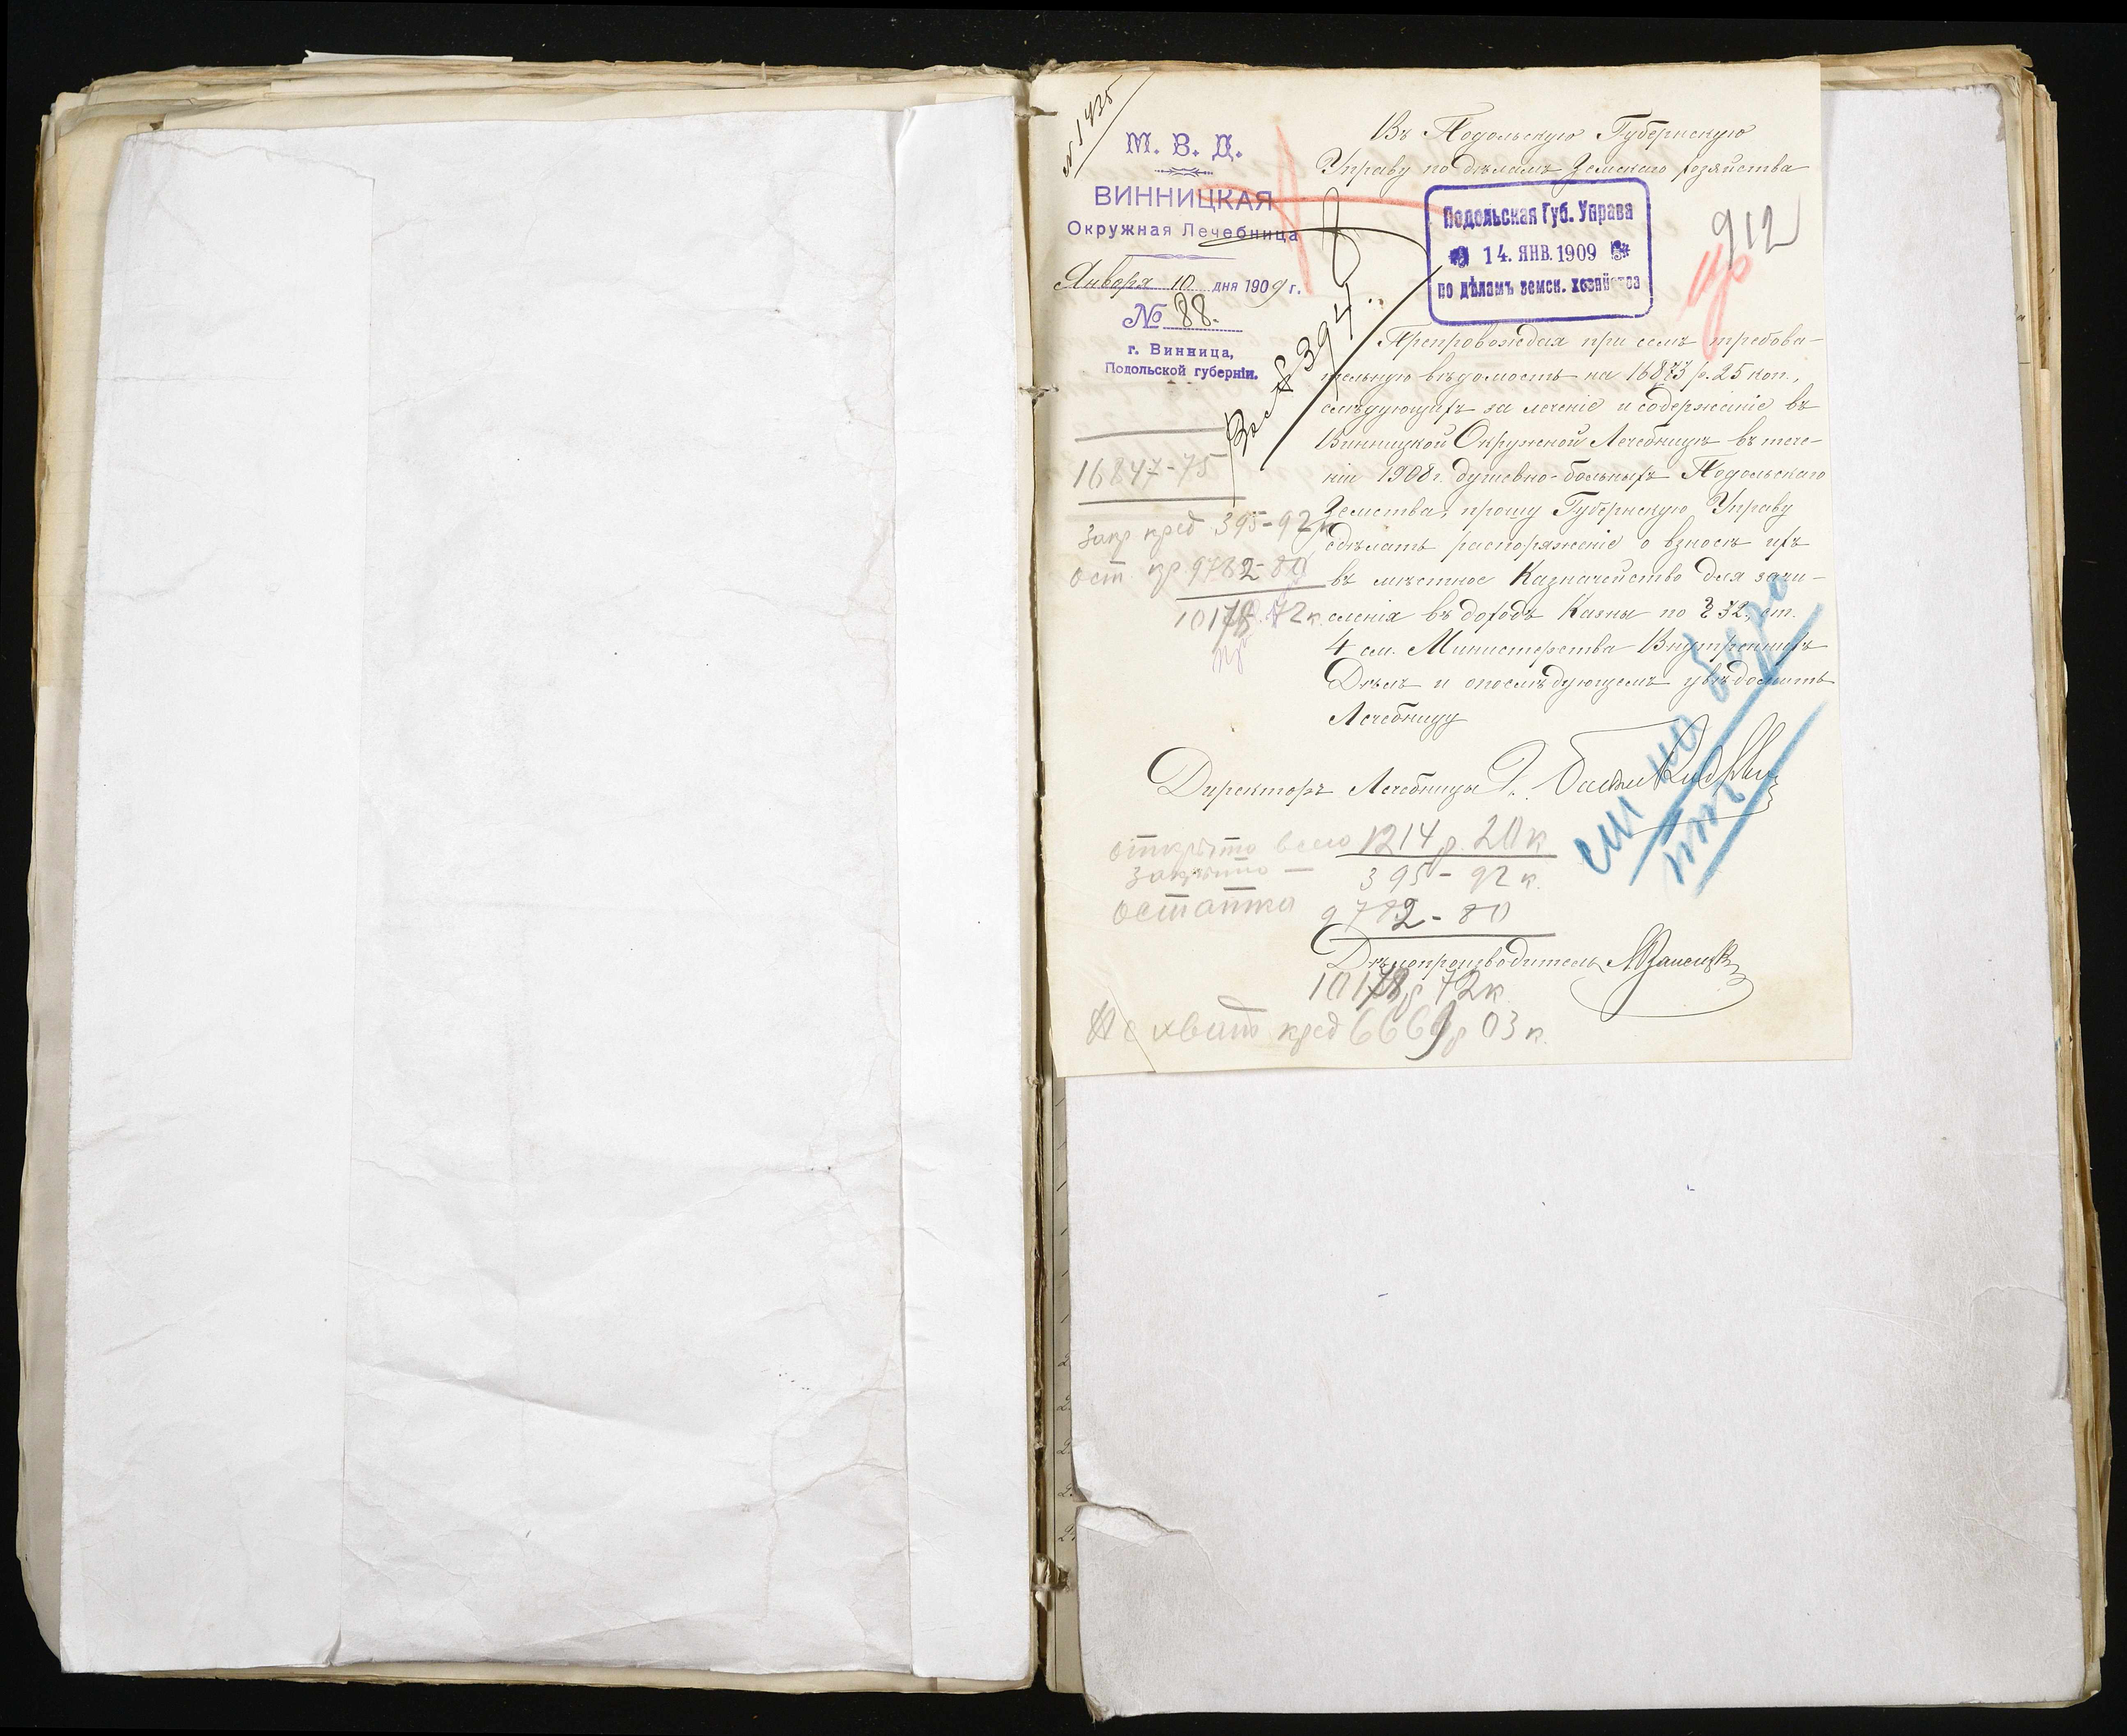 № 1435
М. В. Д.
ВИННИЦКАЯ
Окружная Лечебница
Января 10 дня 1909 г.
№ 88.
г. Винница,
Подольской губерніи.
Въ Подольскую Губернскую
Управу по дѣламъ Земскаго Хозяйства
Подольская Губ. Управа
14. ЯНВ. 1909
по дѣламъ земск. хозяйства
912
Препровождая при семъ требова-
тельную вѣдомость на 16873 р. 25 коп.,
слѣдующихъ за леченіе и содержаніе въ
Винницкой Окружной Лечебницѣ въ тече-
ніи 1908 г. душевно-больныхъ Подольскаго
Земства, прошу Губернскую Управу
сдѣлать распоряженіе о взносѣ ихъ
въ мѣстное Казначейство для зачи-
сленія въ доходъ Казны по § 32, ст.
4 см. Министерства Внутреннихъ
Дѣлъ и о послѣдующемъ увѣдомить
Лечебницу
№ 394
16847-75
Закр кред 395-92 к
Ост. кр 9782-80
10178 р. 72 к.
Директоръ Лечебницы
открыто всего 1214 р. 20 к
Закрыто — 395-92 к.
остатка 9782-80
Дѣлопроизводитель
10178 р 72 к
Не хват кред 6669 р 03 к.
см на обор